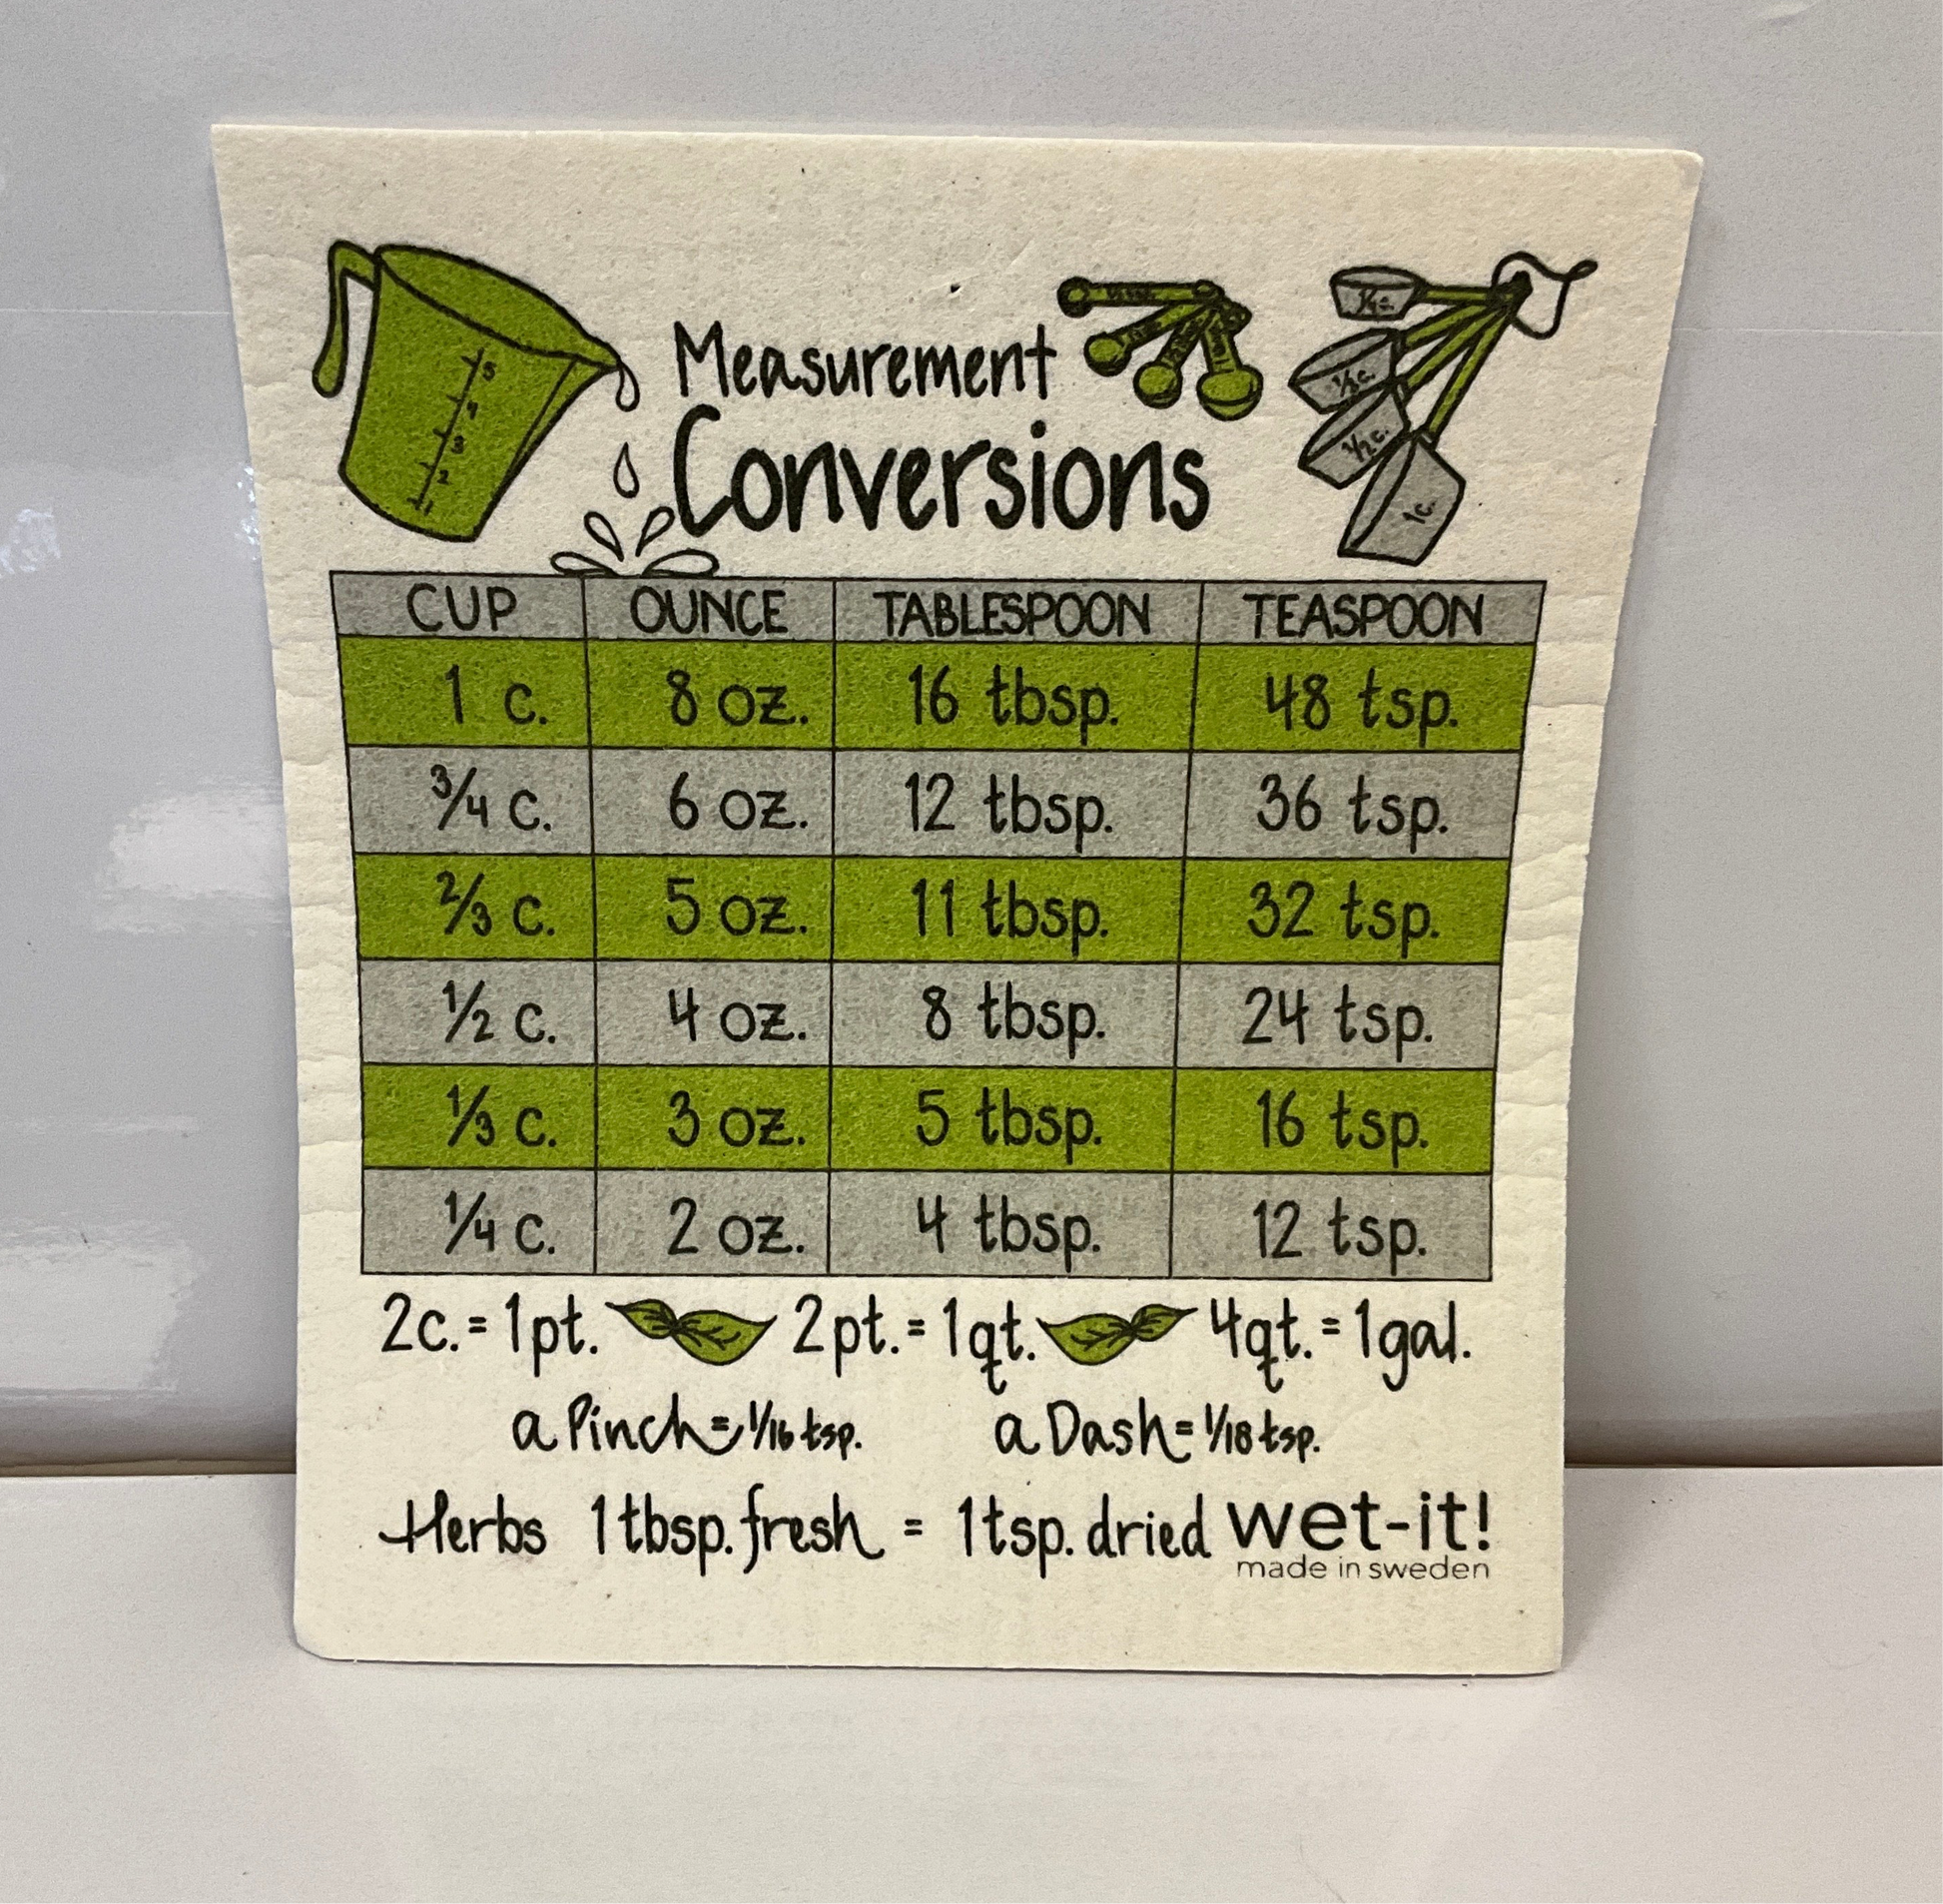 Measurement
Conversions
5
4
3
2
1
1/4 c.
1/3 c.
1/2 c.
1 c.
CUP OUNCE TABLESPOON TEASPOON
1 c. 8 oz. 16 tbsp. 48 tsp.
3/4 c. 6 oz. 12 tbsp. 36 tsp.
2/3 c. 5 oz. 11 tbsp. 32 tsp.
1/2 c. 4 oz. 8 tbsp. 24 tsp.
1/3 c. 3 oz. 5 tbsp. 16 tsp.
1/4 c. 2 oz. 4 tbsp. 12 tsp.
2c. = 1pt. 2pt. = 1qt. 4qt. = 1gal.
a Pinch = 1/16 tsp. a Dash = 1/18 tsp.
Herbs 1 tbsp. fresh = 1 tsp. dried wet-it!
made in sweden